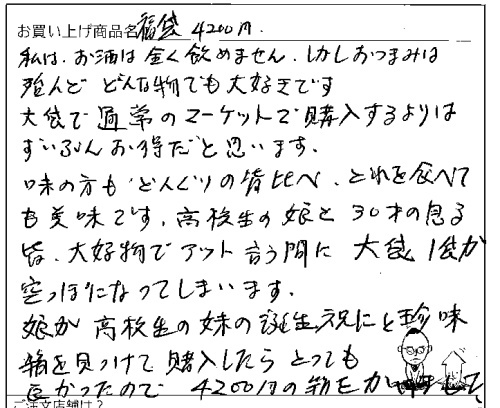 お買い上げ商品名 福袋 4200円
私は、お酒は全く飲めません、しかしおつまみは
殆んど どんな物でも大好きです
大袋で通常のマーケットで購入するよりは
ずいぶんお得だと思います、
味の方も どんぐりの背比べ、どれを食べて
も美味です、高校生の娘と 30才の息子
皆、大好物で アット言う間に 大袋 1袋が
空っぽになってしまいます、
娘が 高校生の妹の誕生祝にと珍味
箱を見つけて購入したら とっても
良かったので 4200円の
ご注文店舗は？